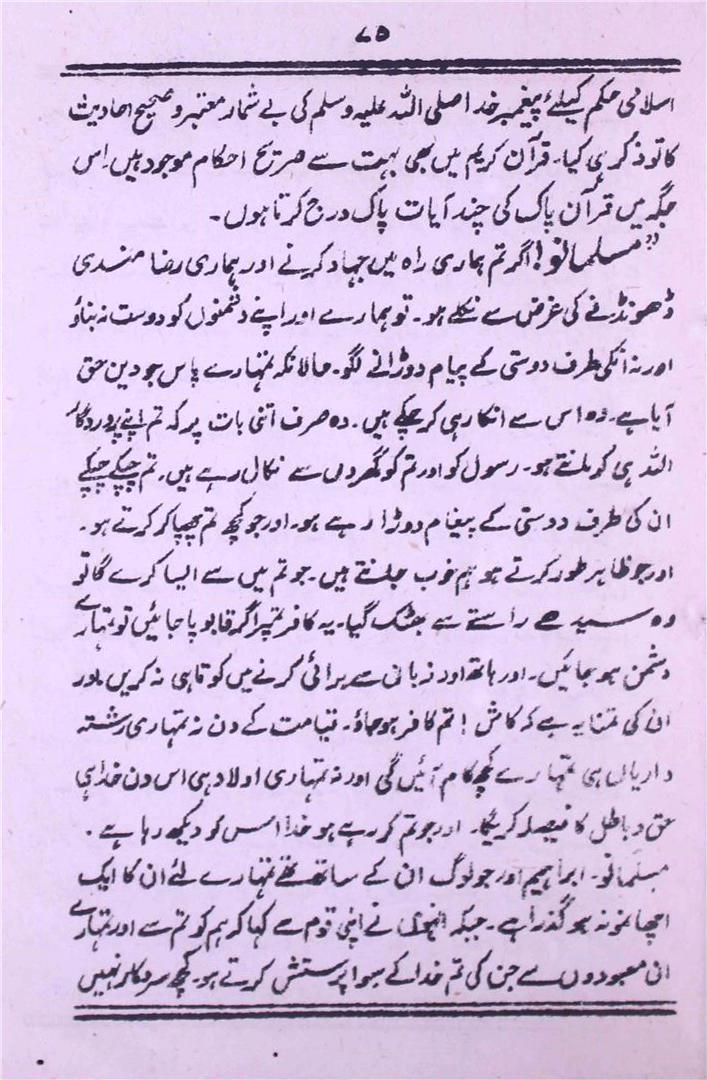 ۷۵
اسلامی حکم کیلئے پیغمبر خدا صلی اللہ علیہ وسلم کی بے شمار معتبر و صحیح احادیث
کا تو ذکر ہی کیا۔ قرآن کریم میں بھی بہت سے صریح احکام موجود ہیں اس
جگہ میں قرآن پاک کی چند آیات پاک درج کرتا ہوں۔
”مسلمانو! اگر تم ہماری راہ میں جہاد کرنے اور ہماری رضا مندی
ڈھونڈنے کی غرض سے نکلے ہو۔ تو ہمارے اور اپنے دشمنوں کو دوست نہ بناؤ
اور نہ انکی طرف دوستی کے پیام دوڑانے لگو۔ حالانکہ تمہارے پاس جو دین حق
آیا ہے۔ وہ اس سے انکار ہی کر چکے ہیں۔ وہ صرف اتنی بات پر کہ تم اپنے پروردگار
اللہ ہی کو مانتے ہو۔ رسول کو اور تم کو گھروں سے نکال رہے ہیں۔ تم چپکے چپکے
ان کی طرف دوستی کے پیغام دوڑا رہے ہو۔ اور جو کچھ تم چھپا کر کرتے ہو۔
اور جو ظاہر طور کرتے ہو ہم خوب جانتے ہیں۔ جو تم میں سے ایسا کرے گا تو
وہ سیدھے راستے سے بھٹک گیا۔ یہ کافر تم پر اگر قابو پا جائیں تو تمہارے
دشمن ہو جائیں۔ اور ہاتھ اور زبانی سے برائی کرنے میں کوتاہی نہ کریں اور
ان کی تمنا یہ ہے کہ کاش! تم کافر ہو جاؤ۔ قیامت کے دن نہ تمہاری رشتہ
داریاں ہی تمہارے کچھ کام آئیں گی اور نہ تمہاری اولاد ہی اس دن خدا ہی
حق و باطل کا فیصلہ کریگا۔ اور جو تم کر رہے ہو خدا اس کو دیکھ رہا ہے۔
مسلمانو۔ ابراہیم اور جو لوگ ان کے ساتھ تھے تمہارے لئے ان کا ایک
اچھا نمونہ ہو گذرا ہے۔ جبکہ انہوں نے اپنی قوم سے کہا کہ ہم کو تم سے اور تمہارے
ان معبودوں سے جن کی تم خدا کے سوا پرستش کرتے ہو۔ کچھ سروکار نہیں